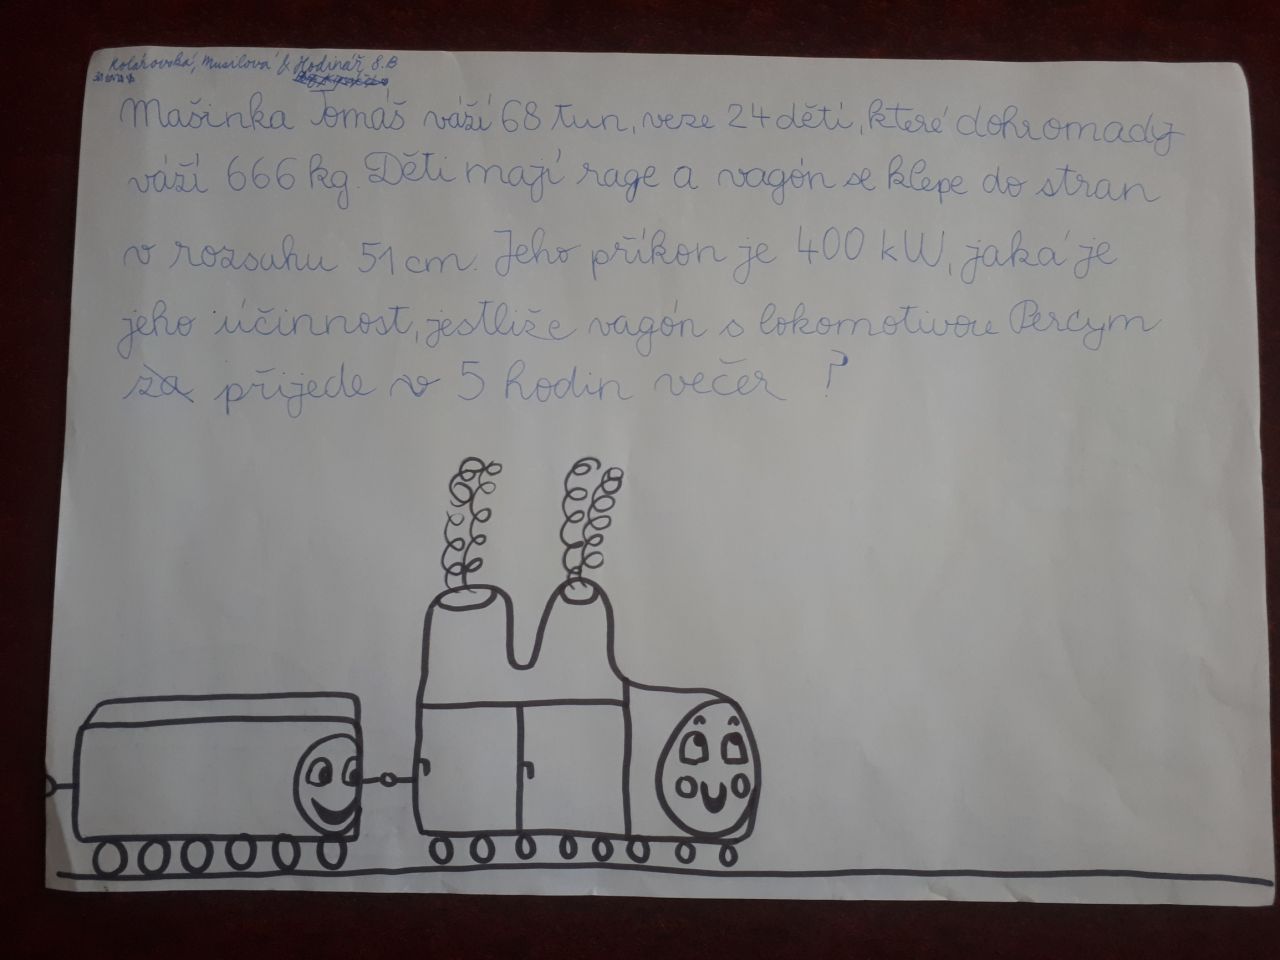 Kolářovská, Musilová & Hodinář 8.B
Mašinka Tomáš váží 68 tun, veze 24 dětí, které dohromady
váží 666 kg. Děti mají rage a vagón se klepe do stran
v rozsahu 51 cm. Jeho příkon je 400 kW, jaká je
jeho účinnost, jestliže vagón s lokomotivou Percym
za přijede v 5 hodin večer ?